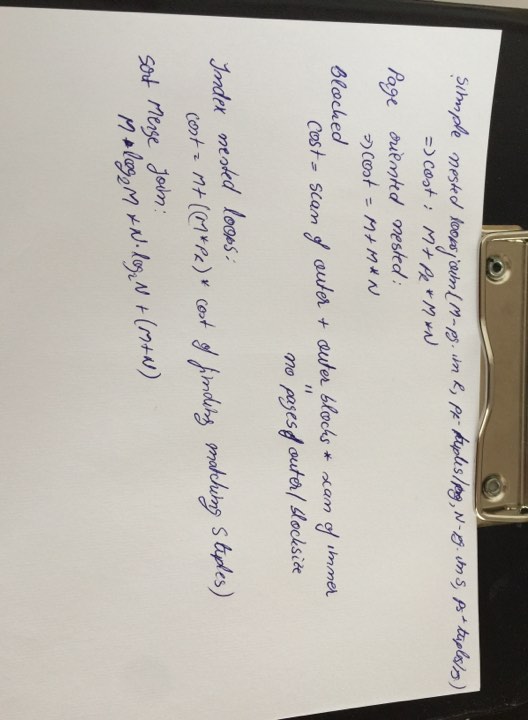 Simple nested loops join (M-pg. in R, PR-tuples/pg, N-pg. in S, PS-tuples/pg)
=> cost: M + PR * M * N
Page oriented nested:
=> cost = M + M * N
Blocked
cost = scan of outer + outer blocks * scan of inner
"
no pages of outer / blocksize
Index nested loops:
cost = M + ((M * PR) * cost of finding matching S tuples)
Sort Merge Join:
M * log2 M + N · log2 N + (M + N)